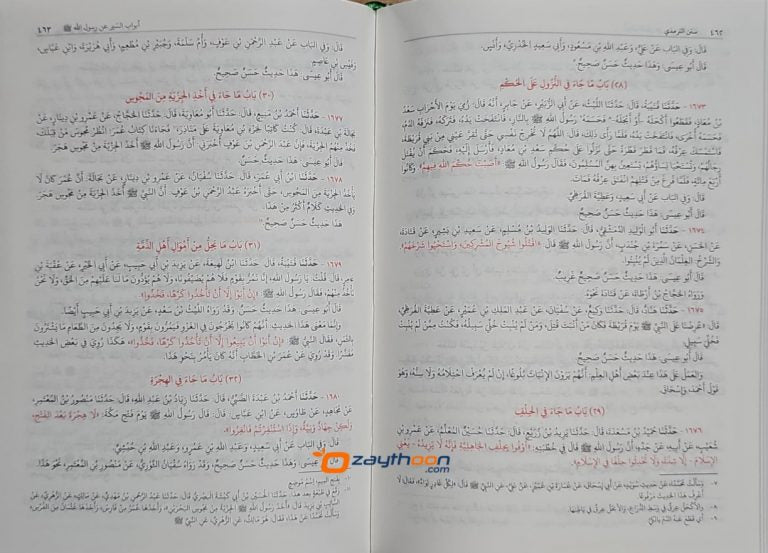 ٤٦٢
سنن الترمذي
قال: وفي الباب عَنْ عَلِيٍّ، وَعَبْدِ اللَّهِ بْنِ مَسْعُودٍ، وَأَبِي سَعِيدٍ الخُدْرِيِّ، وَأَنَسٍ.
قَالَ أَبُو عِيسَى: وَهَذَا حَدِيثٌ حَسَنٌ صَحِيحٌ
(٢٨) بَابُ مَا جَاءَ فِي النُّزُولِ عَلَى الحُكْمِ
١٦٧٣ - حَدَّثَنَا قُتَيْبَةُ، قَالَ: حَدَّثَنَا اللَّيْثُ، عَنْ أَبِي الزُّبَيْرِ، عَنْ جَابِرٍ، أَنَّهُ قَالَ: رُمِيَ يَوْمَ الأَحْزَابِ سَعْدُ
بْنُ مُعَاذٍ، فَقَطَعُوا أَكْحَلَهُ - أَوْ أَبْجَلَهُ - فَحَسَمَهُ رَسُولُ اللَّهِ ﷺ بِالنَّارِ، فَانْتَفَخَتْ يَدُهُ، فَتَرَكَهُ فَنَزَفَهُ الدَّمُ،
فَحَسَمَهُ أُخْرَى، فَانْتَفَخَتْ يَدُهُ، فَلَمَّا رَأَى ذَلِكَ، قَالَ: اللَّهُمَّ لَا تُخْرِجْ نَفْسِي حَتَّى تُقِرَّ عَيْنِي مِنْ بَنِي قُرَيْظَةَ،
فَاسْتَمْسَكَ عِرْقُهُ، فَمَا قَطَرَ قَطْرَةً حَتَّى نَزَلُوا عَلَى حُكْمِ سَعْدِ بْنِ مُعَاذٍ، فَأَرْسَلَ إِلَيْهِ، فَحَكَمَ أَنْ يُقْتَلَ
رِجَالُهُمْ، وَتُسْتَحْيَا نِسَاؤُهُمْ، يَسْتَعِينُ بِهِنَّ المُسْلِمُونَ، فَقَالَ رَسُولُ اللَّهِ ﷺ: «أَصَبْتَ حُكْمَ اللَّهِ فِيهِمْ» وَكَانُوا
أَرْبَعَ مِائَةٍ، فَلَمَّا فَرَغَ مِنْ قَتْلِهِمُ انْفَتَقَ عِرْقُهُ فَمَاتَ.
قَالَ: وَفِي البَابِ عَنْ أَبِي سَعِيدٍ، وَعَطِيَّةَ القُرَظِيِّ.
قَالَ أَبُو عِيسَى: هَذَا حَدِيثٌ حَسَنٌ صَحِيحٌ
١٦٧٤ - حَدَّثَنَا أَبُو الوَلِيدِ الدِّمَشْقِيُّ، قَالَ: حَدَّثَنَا الوَلِيدُ بْنُ مُسْلِمٍ، عَنْ سَعِيدِ بْنِ بَشِيرٍ، عَنْ قَتَادَةَ،
عَنِ الحَسَنِ، عَنْ سَمُرَةَ بْنِ جُنْدَبٍ، أَنَّ رَسُولَ اللَّهِ ﷺ قَالَ: «اقْتُلُوا شُيُوخَ المُشْرِكِينَ، وَاسْتَحْيُوا شَرْخَهُمْ».
وَالشَّرْخُ: الغِلْمَانُ الَّذِينَ لَمْ يُنْبِتُوا.
قَالَ أَبُو عِيسَى: هَذَا حَدِيثٌ حَسَنٌ صَحِيحٌ غَرِيبٌ.
وَرَوَاهُ الحَجَّاجُ بْنُ أَرْطَاةَ، عَنْ قَتَادَةَ نَحْوَهُ.
١٦٧٥ - حَدَّثَنَا هَنَّادٌ، قَالَ: حَدَّثَنَا وَكِيعٌ، عَنْ سُفْيَانَ، عَنْ عَبْدِ المَلِكِ بْنِ عُمَيْرٍ، عَنْ عَطِيَّةَ القُرَظِيِّ،
قَالَ: «عُرِضْنَا عَلَى النَّبِيِّ ﷺ يَوْمَ قُرَيْظَةَ فَكَانَ مَنْ أَنْبَتَ قُتِلَ، وَمَنْ لَمْ يُنْبِتْ خُلِّيَ سَبِيلُهُ، فَكُنْتُ مِمَّنْ لَمْ يُنْبِتْ
فَخُلِّيَ سَبِيلِي.
قَالَ أَبُو عِيسَى: هَذَا حَدِيثٌ حَسَنٌ صَحِيحٌ.
وَالعَمَلُ عَلَى هَذَا عِنْدَ بَعْضِ أَهْلِ العِلْمِ: أَنَّهُمْ يَرَوْنَ الإِنْبَاتَ بُلُوغًا، إِنْ لَمْ يُعْرَفِ احْتِلَامُهُ وَلَا سِنُّهُ، وَهُوَ
قَوْلُ أَحْمَدَ، وَإِسْحَاقَ.
(٢٩) بَابُ مَا جَاءَ فِي الحِلْفِ
١٦٧٦ - حَدَّثَنَا حُمَيْدُ بْنُ مَسْعَدَةَ، قَالَ: حَدَّثَنَا يَزِيدُ بْنُ زُرَيْعٍ، قَالَ: حَدَّثَنَا حُسَيْنٌ المُعَلِّمُ، عَنْ عَمْرِو بْنِ
شُعَيْبٍ، عَنْ أَبِيهِ، عَنْ جَدِّهِ، أَنَّ رَسُولَ اللَّهِ ﷺ قَالَ فِي خُطْبَتِهِ: «أَوْفُوا بِحِلْفِ الجَاهِلِيَّةِ فَإِنَّهُ لَا يَزِيدُهُ - يَعْنِي
الإِسْلَامَ - إِلَّا شِدَّةً، وَلَا تُحْدِثُوا حِلْفًا فِي الإِسْلَامِ».
أبواب السير عن رسول الله ﷺ
٤٦٣
قَالَ: وَفِي البَابِ عَنْ عَبْدِ الرَّحْمَنِ بْنِ عَوْفٍ، وَأُمِّ سَلَمَةَ، وَجُبَيْرِ بْنِ مُطْعِمٍ، وَأَبِي هُرَيْرَةَ، وَابْنِ عَبَّاسٍ،
وَقَيْسِ بْنِ عَاصِمٍ.
قَالَ أَبُو عِيسَى: هَذَا حَدِيثٌ حَسَنٌ صَحِيحٌ.
(٣٠) بَابُ مَا جَاءَ فِي أَخْذِ الجِزْيَةِ مِنَ المَجُوسِ
١٦٧٧ - حَدَّثَنَا أَحْمَدُ بْنُ مَنِيعٍ، قَالَ: حَدَّثَنَا أَبُو مُعَاوِيَةَ، قَالَ: حَدَّثَنَا الحَجَّاجُ، عَنْ عَمْرِو بْنِ دِينَارٍ، عَنْ
بَجَالَةَ بْنِ عَبْدَةَ، قَالَ: كُنْتُ كَاتِبًا لِجَزْءِ بْنِ مُعَاوِيَةَ عَلَى مَنَاذِرَ، فَجَاءَنَا كِتَابُ عُمَرَ: انْظُرْ مَجُوسَ مَنْ قِبَلَكَ،
فَخُذْ مِنْهُمُ الجِزْيَةَ، فَإِنَّ عَبْدَ الرَّحْمَنِ بْنَ عَوْفٍ أَخْبَرَنِي: أَنَّ رَسُولَ اللَّهِ ﷺ أَخَذَ الجِزْيَةَ مِنْ مَجُوسِ هَجَرَ.
قَالَ أَبُو عِيسَى: هَذَا حَدِيثٌ حَسَنٌ.
١٦٧٨ - حَدَّثَنَا ابْنُ أَبِي عُمَرَ، قَالَ: حَدَّثَنَا سُفْيَانُ، عَنْ عَمْرِو بْنِ دِينَارٍ، عَنْ بَجَالَةَ: أَنَّ عُمَرَ كَانَ لَا
يَأْخُذُ الجِزْيَةَ مِنَ المَجُوسِ، حَتَّى أَخْبَرَهُ عَبْدُ الرَّحْمَنِ بْنُ عَوْفٍ: أَنَّ النَّبِيَّ ﷺ أَخَذَ الجِزْيَةَ مِنْ مَجُوسِ هَجَرَ.
وَفِي الحَدِيثِ كَلَامٌ أَكْثَرُ مِنْ هَذَا.
هَذَا حَدِيثٌ حَسَنٌ صَحِيحٌ
(٣١) بَابُ مَا يَحِلُّ مِنْ أَمْوَالِ أَهْلِ الذِّمَّةِ
١٦٧٩ - حَدَّثَنَا قُتَيْبَةُ، قَالَ: حَدَّثَنَا ابْنُ لَهِيعَةَ، عَنْ يَزِيدَ بْنِ أَبِي حَبِيبٍ، عَنْ أَبِي الخَيْرِ، عَنْ عُقْبَةَ بْنِ
عَامِرٍ، قَالَ: قُلْتُ: يَا رَسُولَ اللَّهِ، إِنَّا نَمُرُّ بِقَوْمٍ فَلَا هُمْ يُضَيِّفُونَا، وَلَا هُمْ يُؤَدُّونَ مَا لَنَا عَلَيْهِمْ مِنَ الحَقِّ، وَلَا نَحْنُ
نَأْخُذُ مِنْهُمْ، فَقَالَ رَسُولُ اللَّهِ ﷺ: «إِنْ أَبَوْا إِلَّا أَنْ تَأْخُذُوا كَرْهًا، فَخُذُوا».
قَالَ أَبُو عِيسَى: هَذَا حَدِيثٌ حَسَنٌ، وَقَدْ رَوَاهُ اللَّيْثُ بْنُ سَعْدٍ، عَنْ يَزِيدَ بْنِ أَبِي حَبِيبٍ أَيْضًا.
وَإِنَّمَا مَعْنَى هَذَا الحَدِيثِ: أَنَّهُمْ كَانُوا يَخْرُجُونَ فِي الغَزْوِ فَيَمُرُّونَ بِقَوْمٍ، وَلَا يَجِدُونَ مِنَ الطَّعَامِ مَا يَشْتَرُونَ
بِالثَّمَنِ، فَقَالَ النَّبِيُّ ﷺ: «إِنْ أَبَوْا أَنْ يَبِيعُوا إِلَّا أَنْ تَأْخُذُوا كَرْهًا، فَخُذُوا»، هَكَذَا رُوِيَ فِي بَعْضِ الحَدِيثِ
مُفَسَّرًا، وَقَدْ رُوِيَ عَنْ عُمَرَ بْنِ الخَطَّابِ أَنَّهُ كَانَ يَأْمُرُ بِنَحْوِ هَذَا.
(٣٢) بَابُ مَا جَاءَ فِي الهِجْرَةِ
١٦٨٠ - حَدَّثَنَا أَحْمَدُ بْنُ عَبْدَةَ الضَّبِّيُّ، قَالَ: حَدَّثَنَا زِيَادُ بْنُ عَبْدِ اللَّهِ، قَالَ: حَدَّثَنَا مَنْصُورُ بْنُ المُعْتَمِرِ،
عَنْ مُجَاهِدٍ، عَنْ طَاوُسٍ، عَنِ ابْنِ عَبَّاسٍ، قَالَ: قَالَ رَسُولُ اللَّهِ ﷺ يَوْمَ فَتْحِ مَكَّةَ: «لَا هِجْرَةَ بَعْدَ الفَتْحِ،
وَلَكِنْ جِهَادٌ وَنِيَّةٌ، وَإِذَا اسْتُنْفِرْتُمْ فَانْفِرُوا».
قَالَ: وَفِي البَابِ عَنْ أَبِي سَعِيدٍ، وَعَبْدِ اللَّهِ بْنِ عَمْرٍو، وَعَبْدِ اللَّهِ بْنِ حُبْشِيٍّ.
قَالَ أَبُو عِيسَى: هَذَا حَدِيثٌ حَسَنٌ صَحِيحٌ، وَقَدْ رَوَاهُ سُفْيَانُ الثَّوْرِيُّ، عَنْ مَنْصُورِ بْنِ المُعْتَمِرِ، نَحْوَ هَذَا.
zaythoon.com